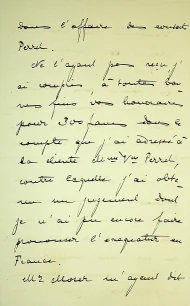 dans l'affaire de
Perrel.
Ne l'ayant pas reçu j'
ai compris, à toutes
fins vos honoraires
pour 300 francs dans le
compte que j'ai adressé à
la cliente Mme Vve Perrel,
contre laquelle j'ai obte-
nu un jugement dont
je n'ai pu encore faire
prononcer l'exequatur en
France.
Me Moser m'ayant dit